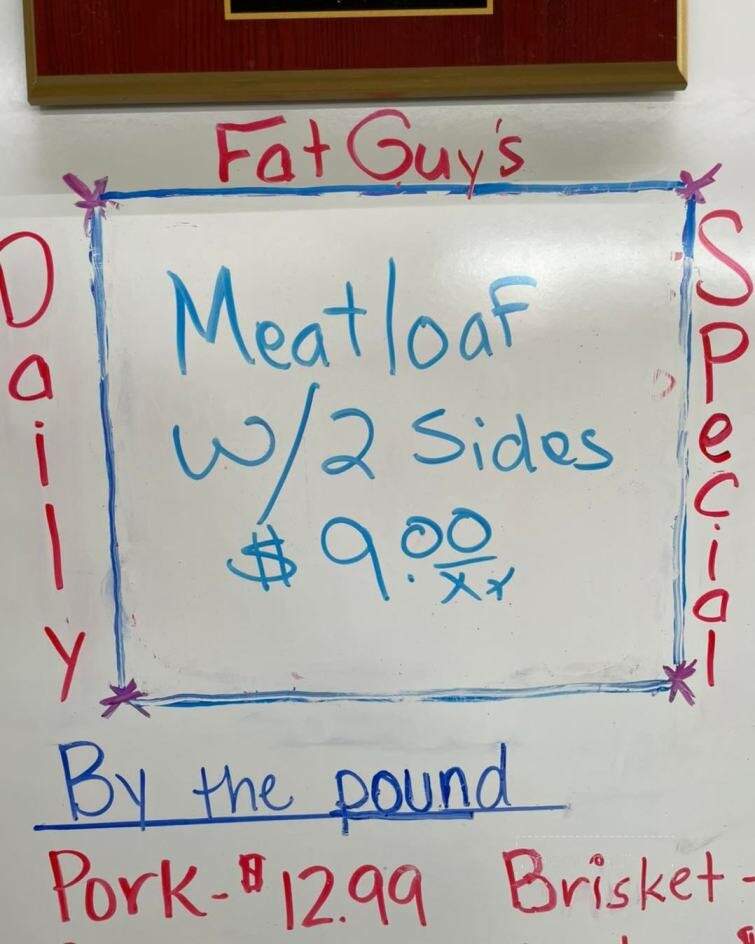 Fat Guy's
Daily
Special
Meatloaf
w/2 Sides
$9.00
xx
By the pound
Pork-$12.99 Brisket-